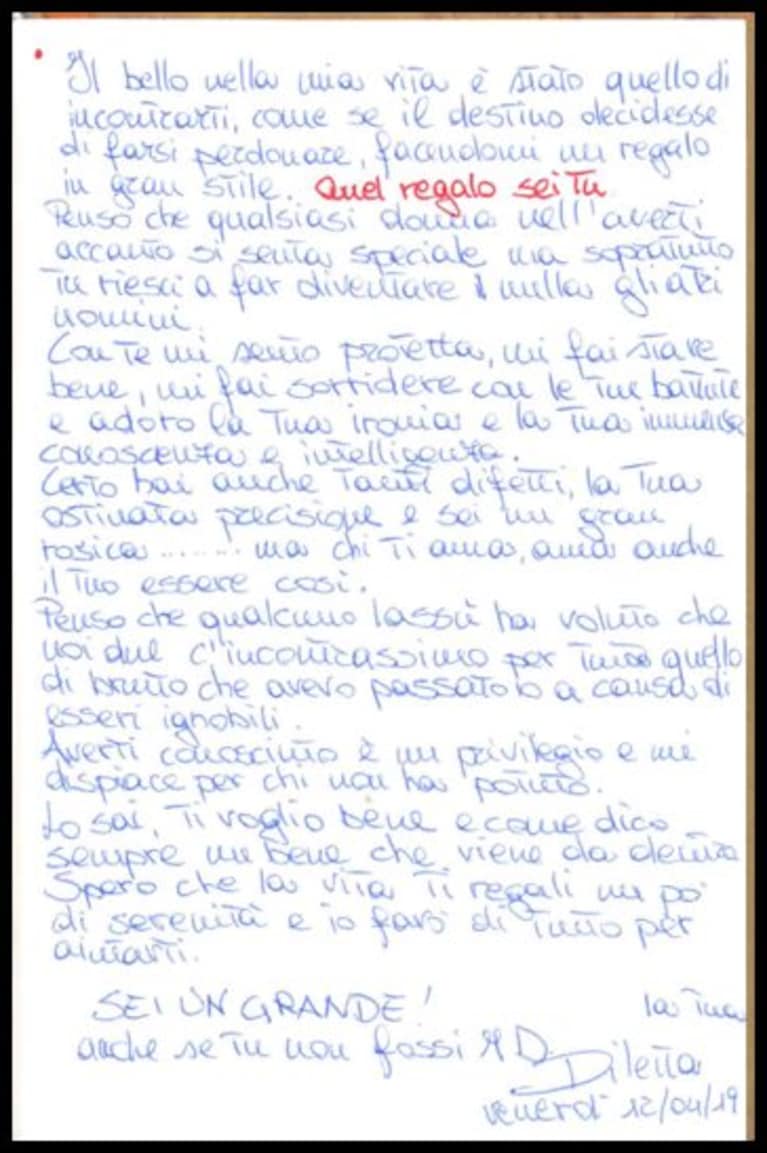 Il bello nella mia vita è stato quello di
incontrarti, come se il destino decidesse
di farsi perdonare, facendomi un regalo
in gran stile. Quel regalo sei Tu
Penso che qualsiasi donna nell'averti
accanto si senta speciale ma sopratutto
Tu riesci a far diventare nulla gli altri
uomini.
Con Te mi sento protetta, mi fai stare
bene, mi fai sorridere con le Tue battute
e adoro la Tua ironia e la Tua immensa
conoscenza e intelligenza.
Certo hai anche Tanti difetti, la Tua
ostinata precisione e sei un gran
rosica ........ ma chi Ti ama, ama anche
il Tuo essere così.
Penso che qualcuno lassù ha voluto che
noi due c'incontrassimo per tutto quello
di brutto che avevo passato a causa di
esseri ignobili.
Averti conosciuto è un privilegio e mi
dispiace per chi non ha potuto.
Lo sai, Ti voglio bene e come dico
sempre un bene che viene da dentro
Spero che la vita Ti regali un po'
di serenità e io farò di Tutto per
aiutarti.
SEI UN GRANDE!
la Tua
anche se Tu non fossi MD
Diletta
venerdì 12/04/19